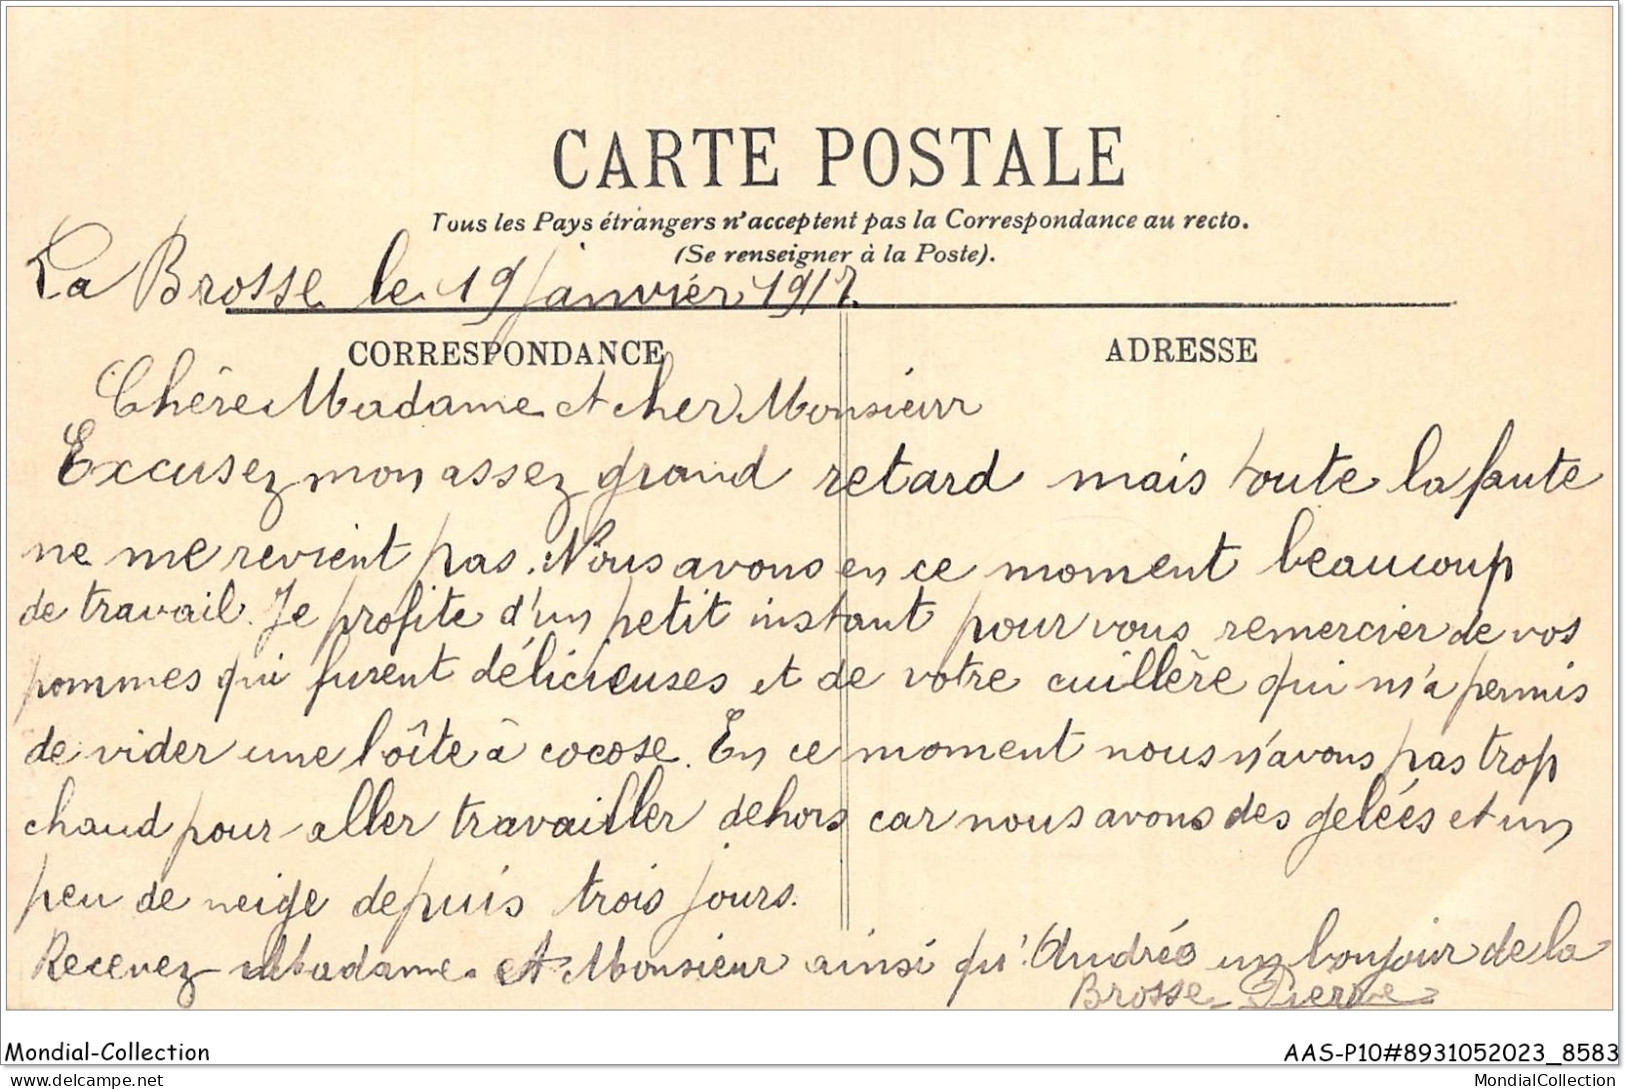 CARTE POSTALE
Tous les Pays étrangers n'acceptent pas la Correspondance au recto.
(Se renseigner à la Poste).
La Brosse le 19 janvier 1917.
CORRESPONDANCE
ADRESSE
Chère Madame et cher Monsieur
Excusez mon assez grand retard mais toute la faute
ne me revient pas. Nous avons en ce moment beaucoup
de travail. Je profite d'un petit instant pour vous remercier de vos
pommes qui furent délicieuses et de votre cuillère qui m'a permis
de vider une boîte à cocose. En ce moment nous n'avons pas trop
chaud pour aller travailler dehors car nous avons des gelées et un
peu de neige depuis trois jours.
Recevez Madame et Monsieur ainsi qu'Andrée un bonjour de la
Brosse Pierre
Mondial-Collection
AAS-P10#8931052023_8583
delcampe.net
MondialCollection